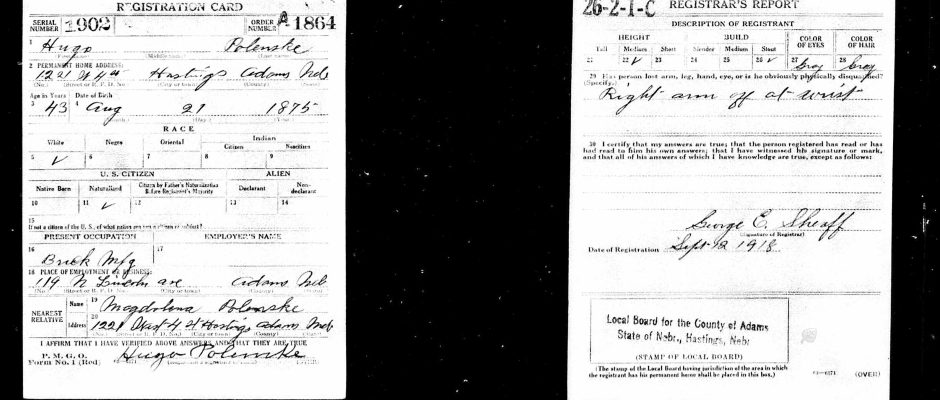 REGISTRATION CARD
SERIAL NUMBER 1902 ORDER NUMBER A 1864
1 Hugo Polenske
2 PERMANENT HOME ADDRESS:
1221 W 4th Hastings Adams Neb
(No.) (Street or R. F. D. No.) (City or town) (County) (State)
Age in Years Date of Birth
3 43 4 Aug 21 1875
RACE
White Negro Oriental Indian
Citizen Noncitizen
5 ✓ 6 7 8 9
U. S. CITIZEN ALIEN
Native Born Naturalized Citizen by Father's Naturalization Before Registrant's Majority Declarant Non-declarant
10 11 ✓ 12 13 14
15
If not a citizen of the U. S., of what nation are you a citizen or subject?
PRESENT OCCUPATION EMPLOYER'S NAME
16 Brick Mfg 17
18 PLACE OF EMPLOYMENT OR BUSINESS:
119 N Lincoln ave Adams Neb
(No.) (Street or R. F. D. No.) (City or town) (County) (State)
NEAREST RELATIVE
Name 19 Magdalena Polenske
Address 20 1221 West 4 st Hastings Adams Neb
(No.) (Street or R. F. D. No.) (City or town) (County) (State)
I AFFIRM THAT I HAVE VERIFIED ABOVE ANSWERS AND THAT THEY ARE TRUE
P. M. G. O.
Form No. 1 (Red) Hugo Polenske
26-2-1-C REGISTRAR'S REPORT
DESCRIPTION OF REGISTRANT
HEIGHT BUILD COLOR OF EYES COLOR OF HAIR
Tall Medium Short Slender Medium Stout
21 22 ✓ 23 24 25 26 ✓ 27 Gray 28 Gray
29 Has person lost arm, leg, hand, eye, or is he obviously physically disqualified?
(Specify.)
Right arm off at wrist
30 I certify that my answers are true; that the person registered has read or has
had read to him his own answers; that I have witnessed his signature or mark,
and that all of his answers of which I have knowledge are true, except as follows:
George E. Sheaff
(Signature of Registrar)
Date of Registration Sept 12 1918
Local Board for the County of Adams
State of Nebr., Hastings, Nebr
(STAMP OF LOCAL BOARD)
(The stamp of the Local Board having jurisdiction of the area in which
the registrant has his permanent home shall be placed in this box.)
(OVER)